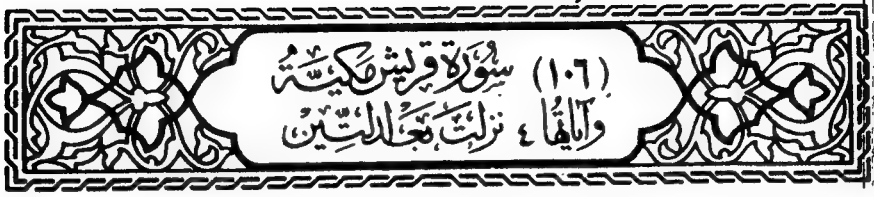 (١٠٦) سُورَةُ قُرَيْشٍ مَكِّيَّةٌ
وَآيَاتُهَا ٤ نَزَلَتْ بَعْدَ التِّينِ